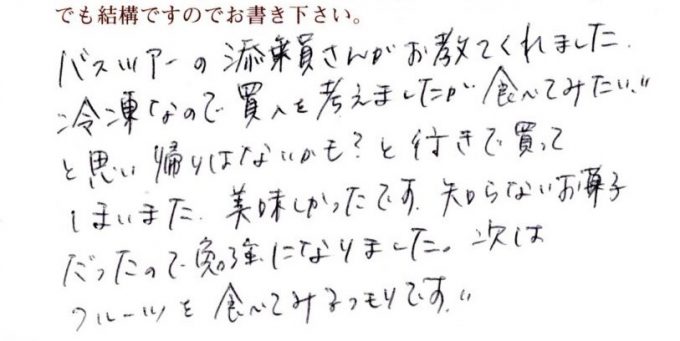 でも結構ですのでお書き下さい。
バスツアーの添乗員さんがお教てくれました.
冷凍なので買入を考えましたが食べてみたい!!
と思い帰りはないかも?と行きで買って
しまいまた. 美味しかったです. 知らないお菓子
だったので勉強になりました。次は
フルーツを食べてみるつもりです!!